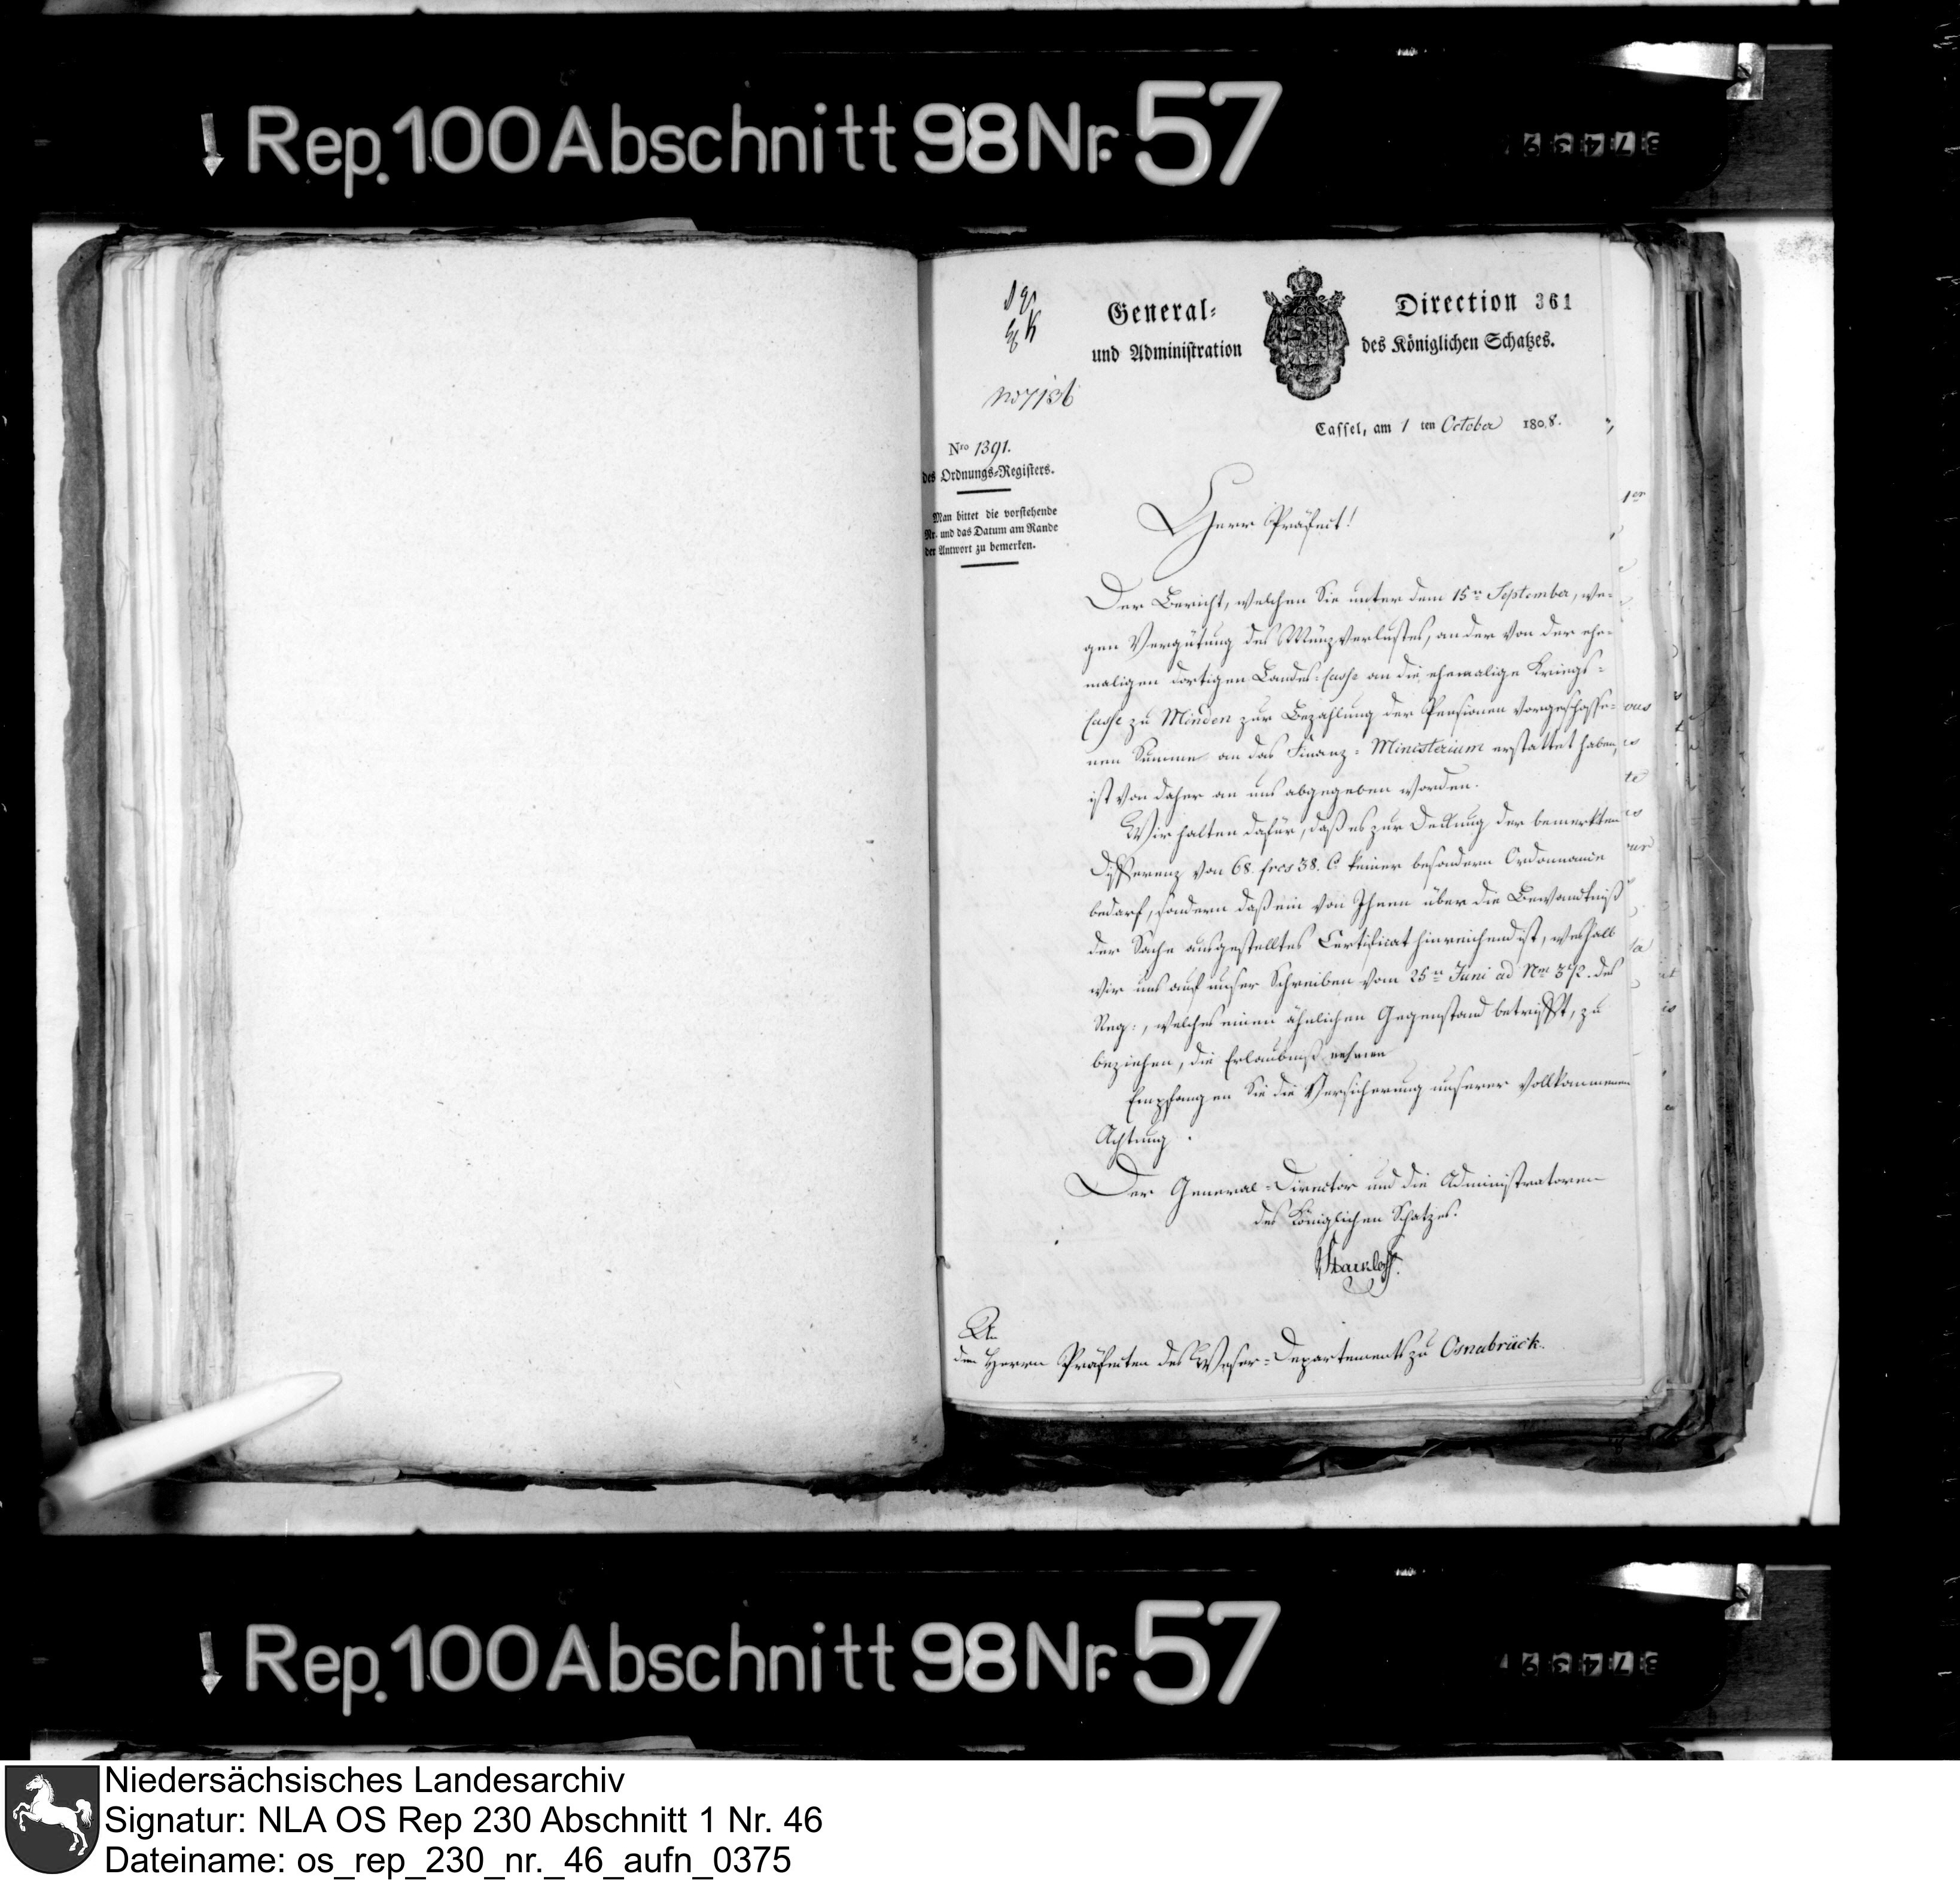 Rep. 100 Abschnitt 98 Nr. 57
General-
Direction 361
und Administration
des Königlichen Schatzes.
No 7186
Cassel, am 1 ten October 1808.
Nro 1391.
des Ordnungs-Registers.
Man bittet die vorstehende
Nr. und das Datum am Rande
der Antwort zu bemerken.
Herr Präfect!
Der Bericht, welchen Sie unter dem 15n September, we-
gen Vergütung des Münzverlustes, an der von der ehe-
maligen dortigen Landes-Casse an die ehemalige Kriegs-
Casse zu Minden zur Bezahlung der Pensionen vorgeschosse-
nen Summe an das Finanz-Ministerium erstattet haben,
ist von daher an uns abgegeben worden.
Wir halten dafür, daß es zur Deckung der bemerkten
Differenz von 68. frcs 38. C. keiner besondern Ordonnance
bedarf, sondern daß ein von Ihnen über die Bewandtniß
der Sache ausgestelltes Certificat hinreichend ist, weshalb
wir uns auf unser Schreiben vom 25n Juni ad Nro 372. des
Reg:, welches einen ähnlichen Gegenstand betrifft, zu
beziehen, die Erlaubniß nehmen
Empfangen Sie die Versicherung unserer vollkommenen
Achtung.
Der General-Director und die Administratoren
des Königlichen Schatzes.
An
den Herrn Präfecten des Weser-Departements zu Osnabrück.
Rep. 100 Abschnitt 98 Nr. 57
Niedersächsisches Landesarchiv
Signatur: NLA OS Rep 230 Abschnitt 1 Nr. 46
Dateiname: os_rep_230_nr._46_aufn_0375